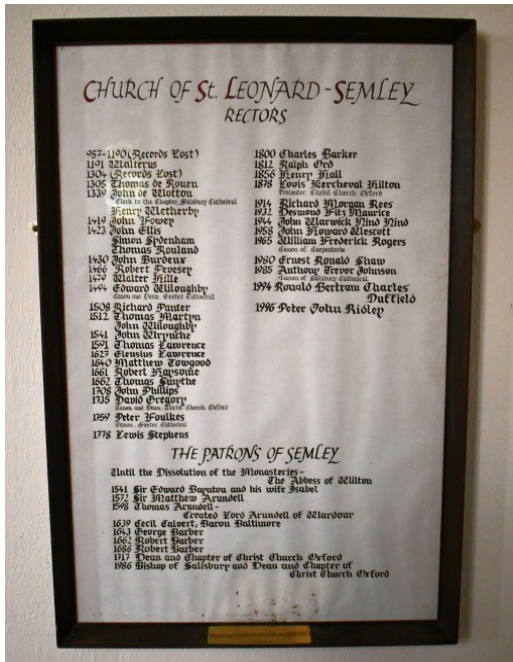 CHURCH OF St. LEONARD - SEMLEY
RECTORS
957-1190 (Records Lost)
1191 Walterus
1304 (Records Lost)
1305 Thomas de Rouen
1339 John de Wotton
Clerk to the Chapter, Salisbury Cathedral
Henry Wetherby
1419 John Fowey
1423 John Ellis
Simon Sydenham
Thomas Rouland
1430 John Burdeux
1466 Robert Pevesey
1479 Walter Hille
1494 Edward Wiloughby
Canon and Dean, Exeter Cathedral
1508 Richard Panter
1512 Thomas Martyn
John Wiloughby
1541 John Wrynche
1591 Thomas Lawrence
1627 Eleusius Lawrence
1640 Matthew Towgood
1661 Robert Haysome
1662 Thomas Smythe
1708 John Phillips
1735 David Gregory
Canon and Dean, Christ Church Oxford
1759 Peter Foulkes
Canon, Exeter Cathedral
1778 Lewis Stephens
1800 Charles Barker
1812 Ralph Ord
1856 Henry Hall
1878 Louis Kercheval Hilton
Precentor Christ Church Oxford
1914 Richard Morgan Rees
1932 Desmond Fitz Maurice
1944 John Warwick Nind Nind
1958 John Howard Wescott
1965 William Frederick Rogers
Canon of Carpentaria
1980 Ernest Ronald Shaw
1985 Anthony Trevor Johnson
Canon of Salisbury Cathedral
1994 Ronald Bertram Charles
Duffield
1996 Peter John Ridley
THE PATRONS OF SEMLEY
Until the Dissolution of the Monasteries -
The Abbess of Wilton
1541 Sir Edward Baynton and his wife Isabel
1572 Sir Matthew Arundell
1598 Thomas Arundell -
Created Lord Arundell of Wardour
1639 Cecil Calvert, Baron Baltimore
1643 George Barber
1662 Robert Barber
1686 Robert Barber
1717 Dean and Chapter of Christ Church Oxford
1986 Bishop of Salisbury and Dean and Chapter of
Christ Church Oxford